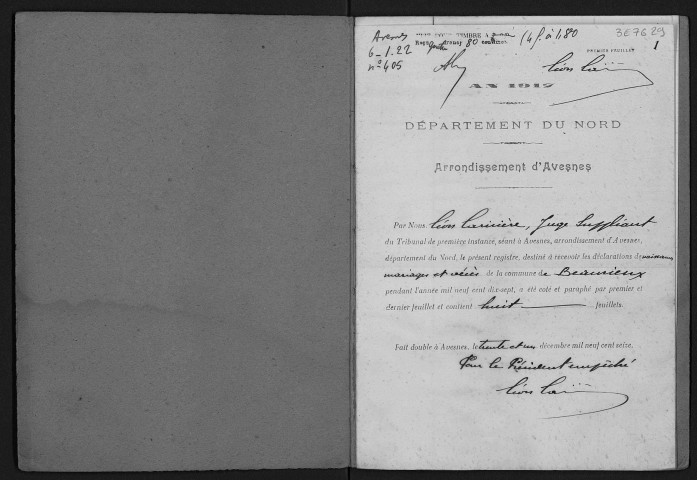 Avesnes
6-1.22
n° 405
80 centimes
3E7629
PREMIER FEUILLET
1
AN 1917
DÉPARTEMENT DU NORD
Arrondissement d'Avesnes
Par Nous Léon Carinière, Juge Suppléant
du Tribunal de première instance, séant à Avesnes, arrondissement d'Avesnes,
département du Nord, le présent registre, destiné à recevoir les déclarations de naissances
mariages et décès de la commune de Beaurieux
pendant l'année mil neuf cent dix-sept, a été coté et paraphé par premier et
dernier feuillet et contient huit feuillets.
Fait double à Avesnes, le trente et un décembre mil neuf cent seize.
Pour le Président empêché